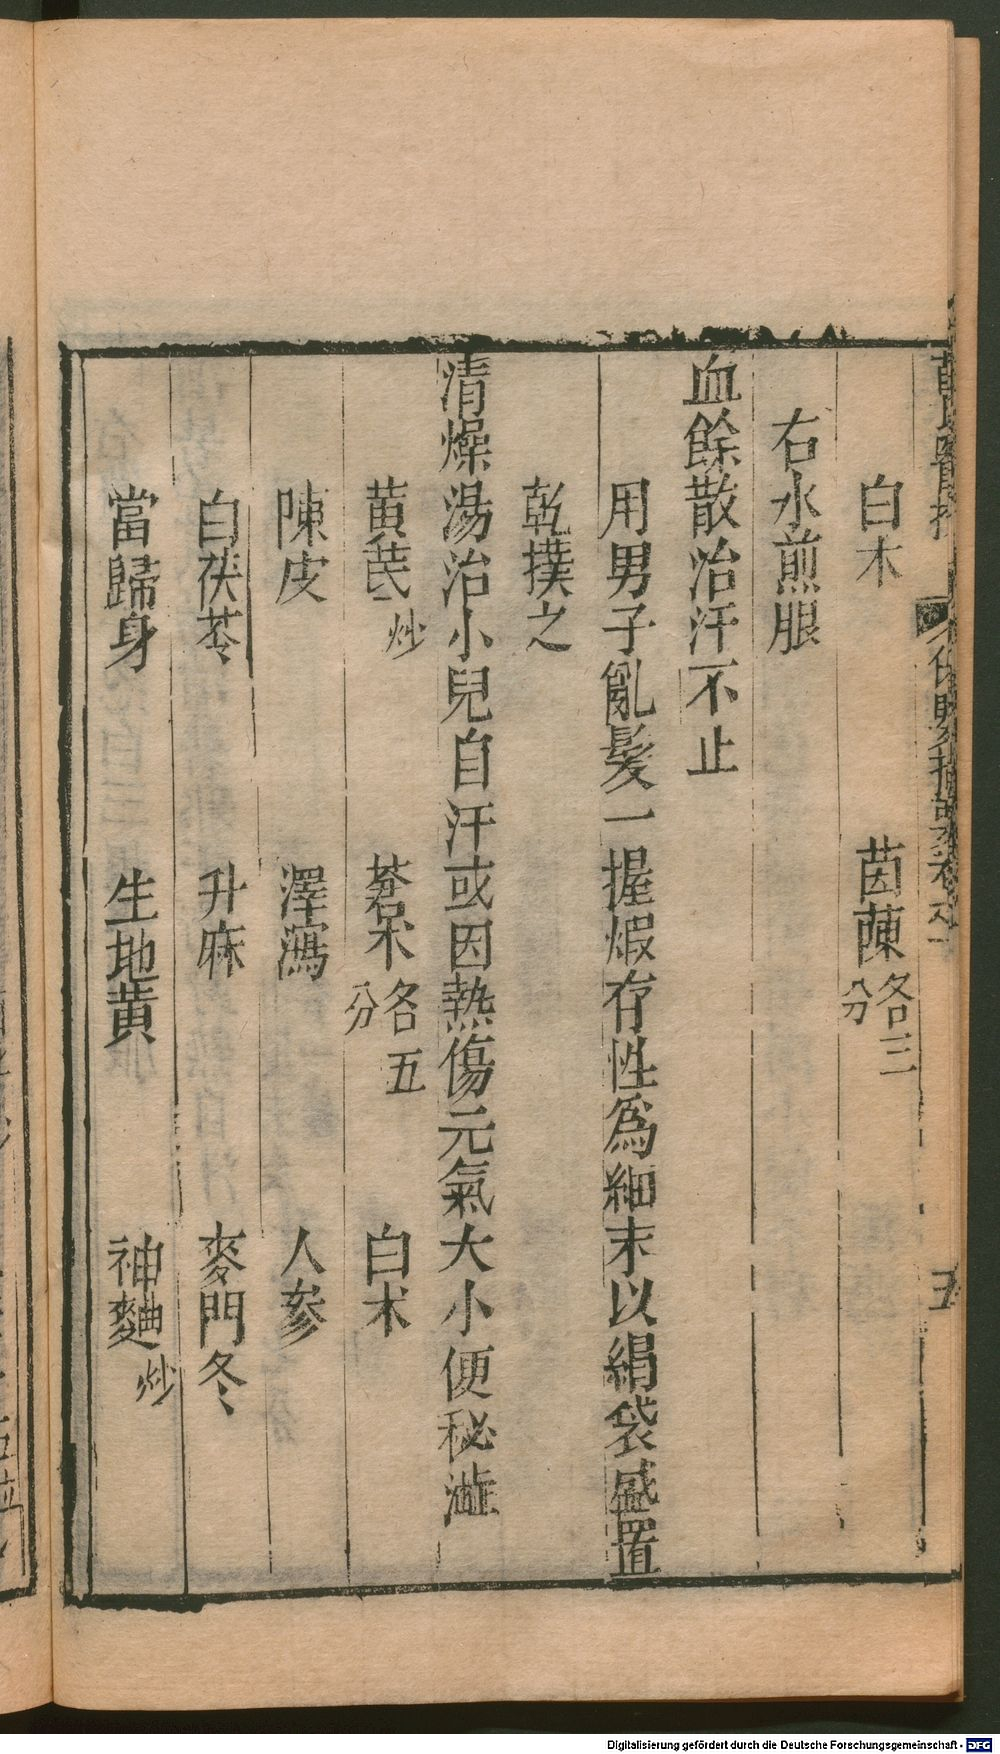 白术　茵蔯各三分
右水煎服
血餘散治汗不止
用男子亂髮一握煆存性爲細末以絹袋盛置
乾撲之
清燥湯治小兒自汗或因熱傷元氣大小便秘澁
黄芪炒　蒼术各五分　白术
陳皮　澤瀉　人參
白茯苓　升麻　麥門冬
當歸身　生地黄　神麯炒
Digitalisierung gefördert durch die Deutsche Forschungsgemeinschaft - DFG